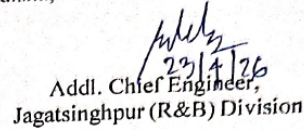 23/4/26
Addl. Chief Engineer,
Jagatsinghpur (R&B) Division